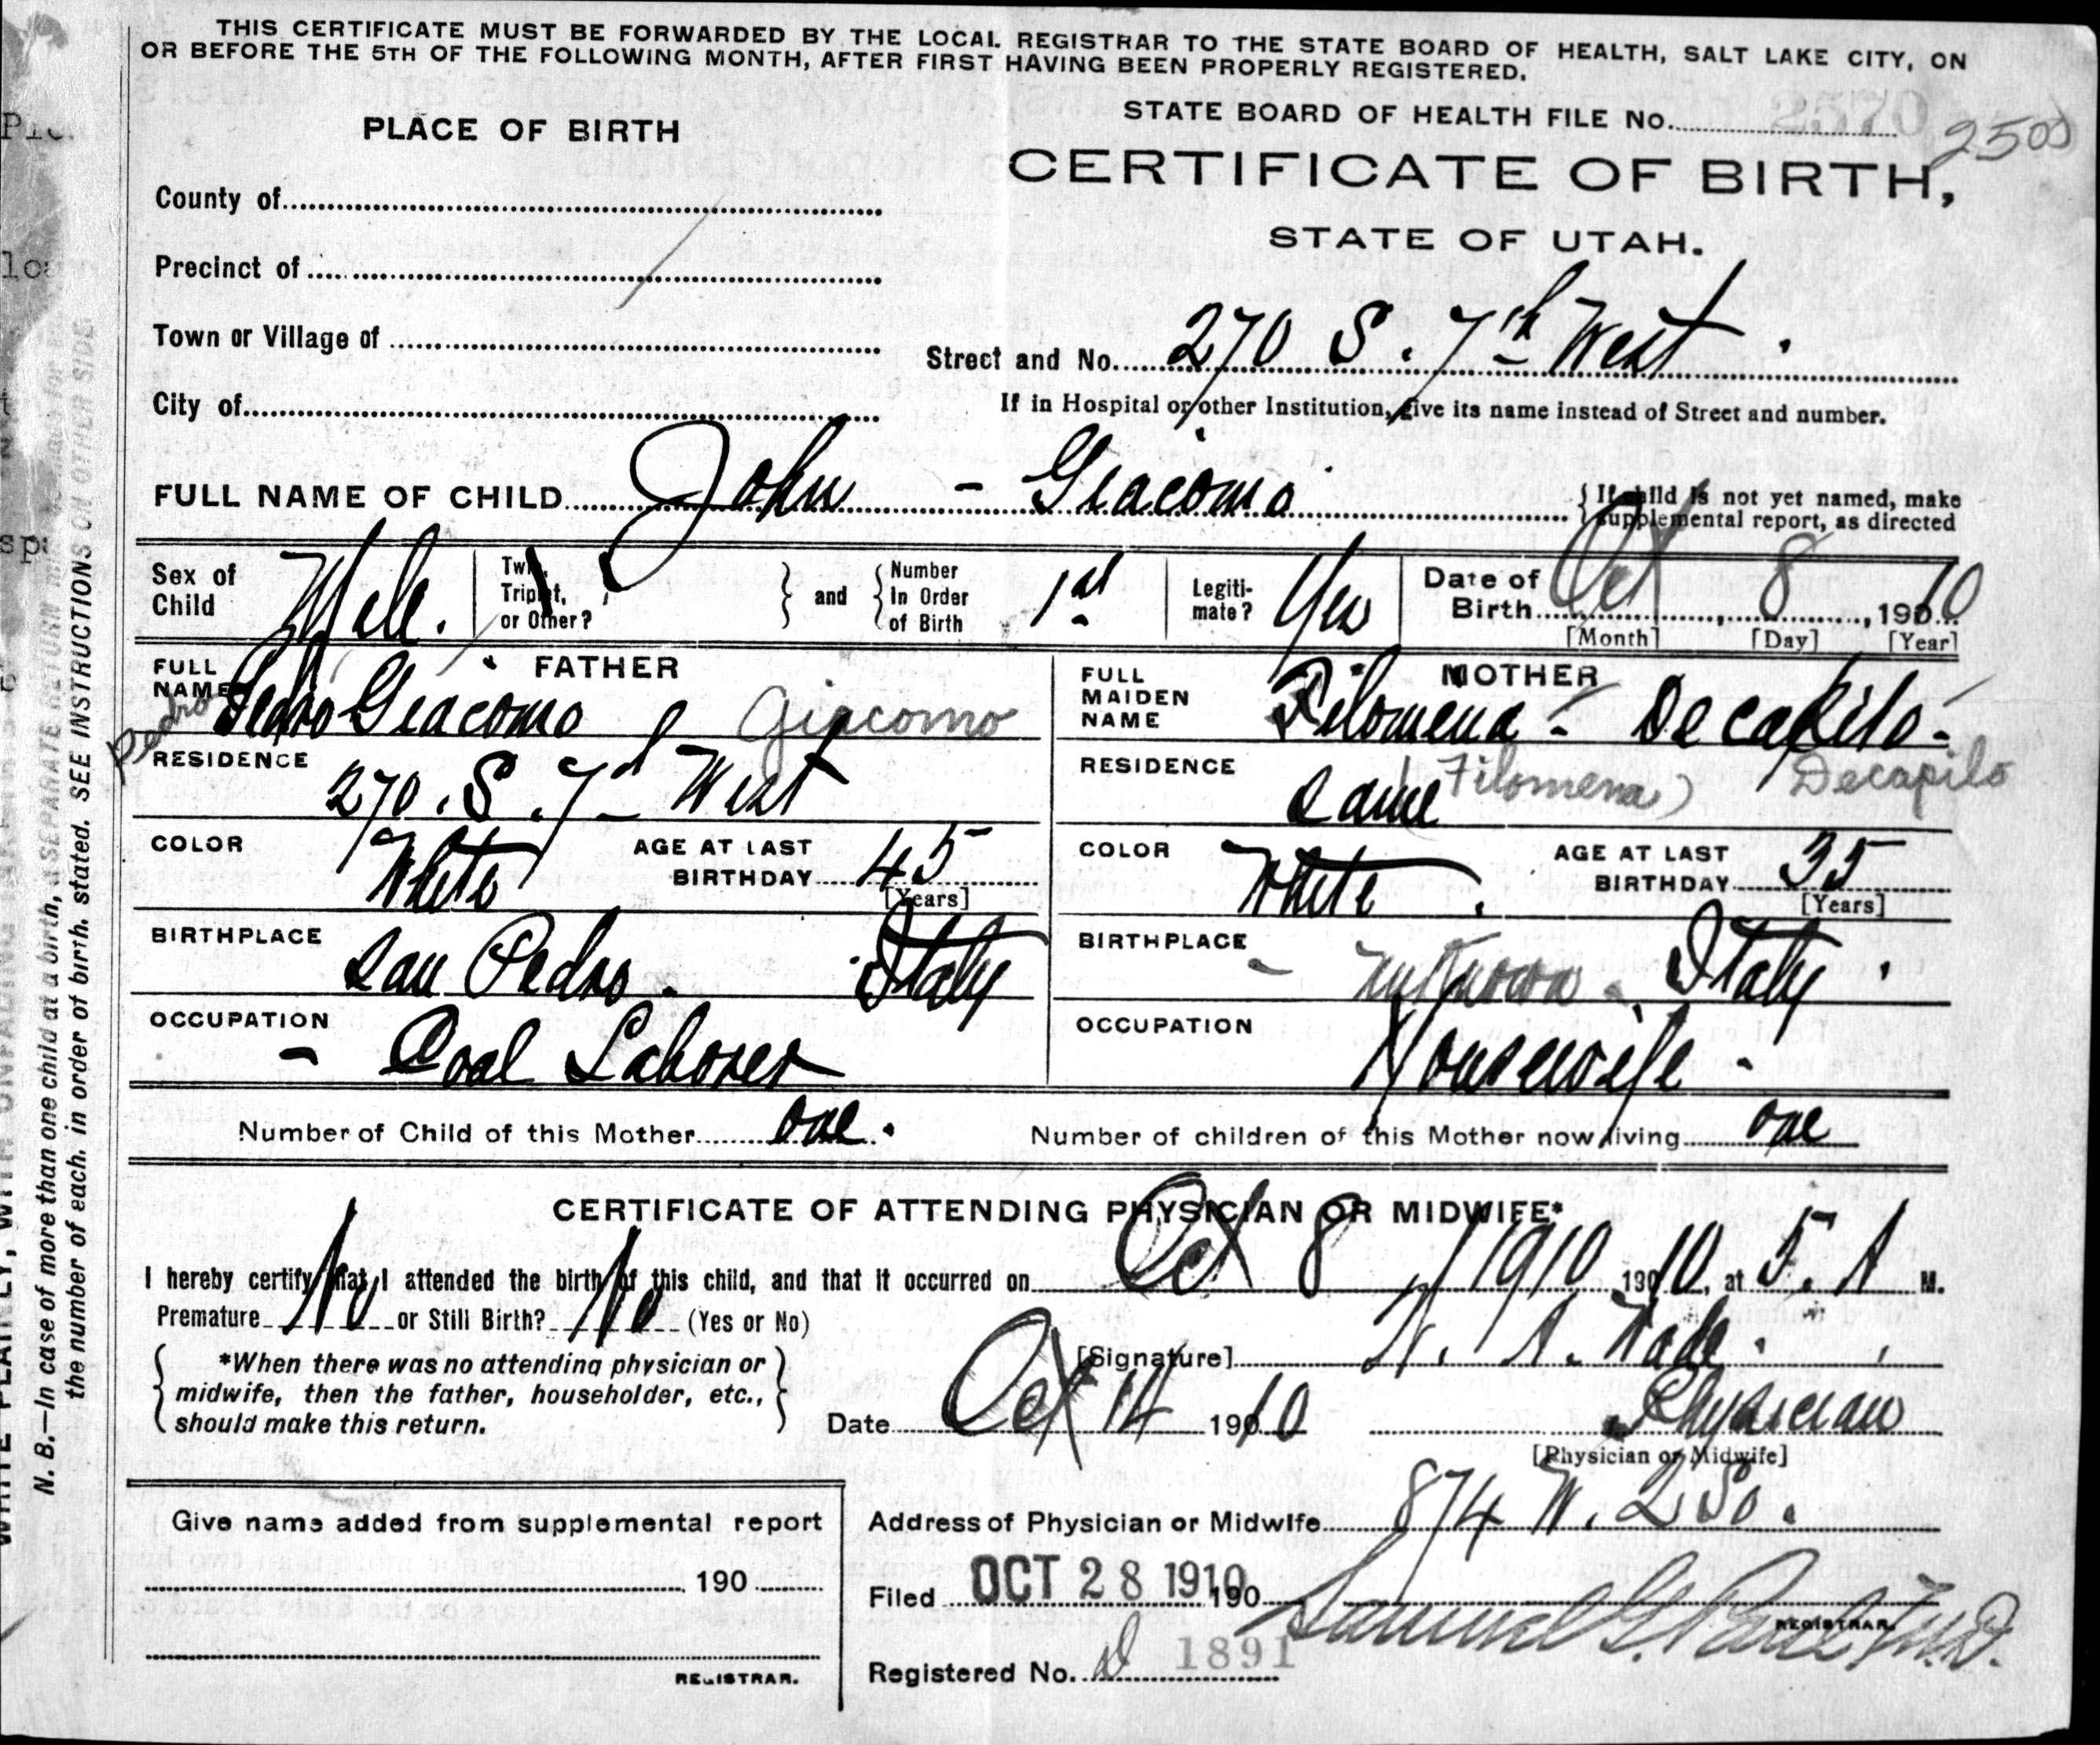 THIS CERTIFICATE MUST BE FORWARDED BY THE LOCAL REGISTRAR TO THE STATE BOARD OF HEALTH, SALT LAKE CITY, ON
OR BEFORE THE 5TH OF THE FOLLOWING MONTH, AFTER FIRST HAVING BEEN PROPERLY REGISTERED.
STATE BOARD OF HEALTH FILE No. 2500
PLACE OF BIRTH
CERTIFICATE OF BIRTH,
STATE OF UTAH.
County of
Precinct of
Town or Village of
Street and No. 270 S. 7th West.
City of
If in Hospital or other Institution, give its name instead of Street and number.
FULL NAME OF CHILD John - Giacomo
If child is not yet named, make
supplemental report, as directed
Sex of Child Male.
Twin, Triplet, or Other?
and Number In Order of Birth 1st
Legitimate? Yes
Date of Birth Oct 8, 1910
[Month] [Day] [Year]
FATHER
FULL NAME Pedro Giacomo Giacomo
Pedro
RESIDENCE 270. S. 7th West
COLOR White
AGE AT LAST BIRTHDAY 45
[Years]
BIRTHPLACE San Pedro. Italy
OCCUPATION - Coal Laborer
MOTHER
FULL MAIDEN NAME Filomena - Decapilo -
RESIDENCE Same (Filomena) Decapilo
COLOR White.
AGE AT LAST BIRTHDAY 35
[Years]
BIRTHPLACE - unknown. Italy.
OCCUPATION Housewife -
Number of Child of this Mother one.
Number of children of this Mother now living one
CERTIFICATE OF ATTENDING PHYSICIAN OR MIDWIFE*
I hereby certify that I attended the birth of this child, and that it occurred on Oct 8, 1910 1910, at 5. A M.
Premature No or Still Birth? No (Yes or No)
[Signature]
*When there was no attending physician or
midwife, then the father, householder, etc.,
should make this return.
Date Oct 14 1910
Physician
[Physician or Midwife]
Address of Physician or Midwife 874 W. 2 So.
Give name added from supplemental report
190
REGISTRAR.
Filed OCT 28 1910 190
Samuel G. Paul M.D.
REGISTRAR.
Registered No. D 1891
N. B.—In case of more than one child at a birth, a SEPARATE RETURN
the number of each, in order of birth, stated. SEE INSTRUCTIONS ON OTHER SIDE